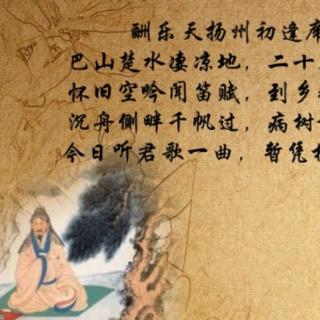 酬乐天扬州初逢席
巴山楚水凄凉地，二十
怀旧空吟闻笛赋，到乡
沉舟侧畔千帆过，病树
今日听君歌一曲，暂凭